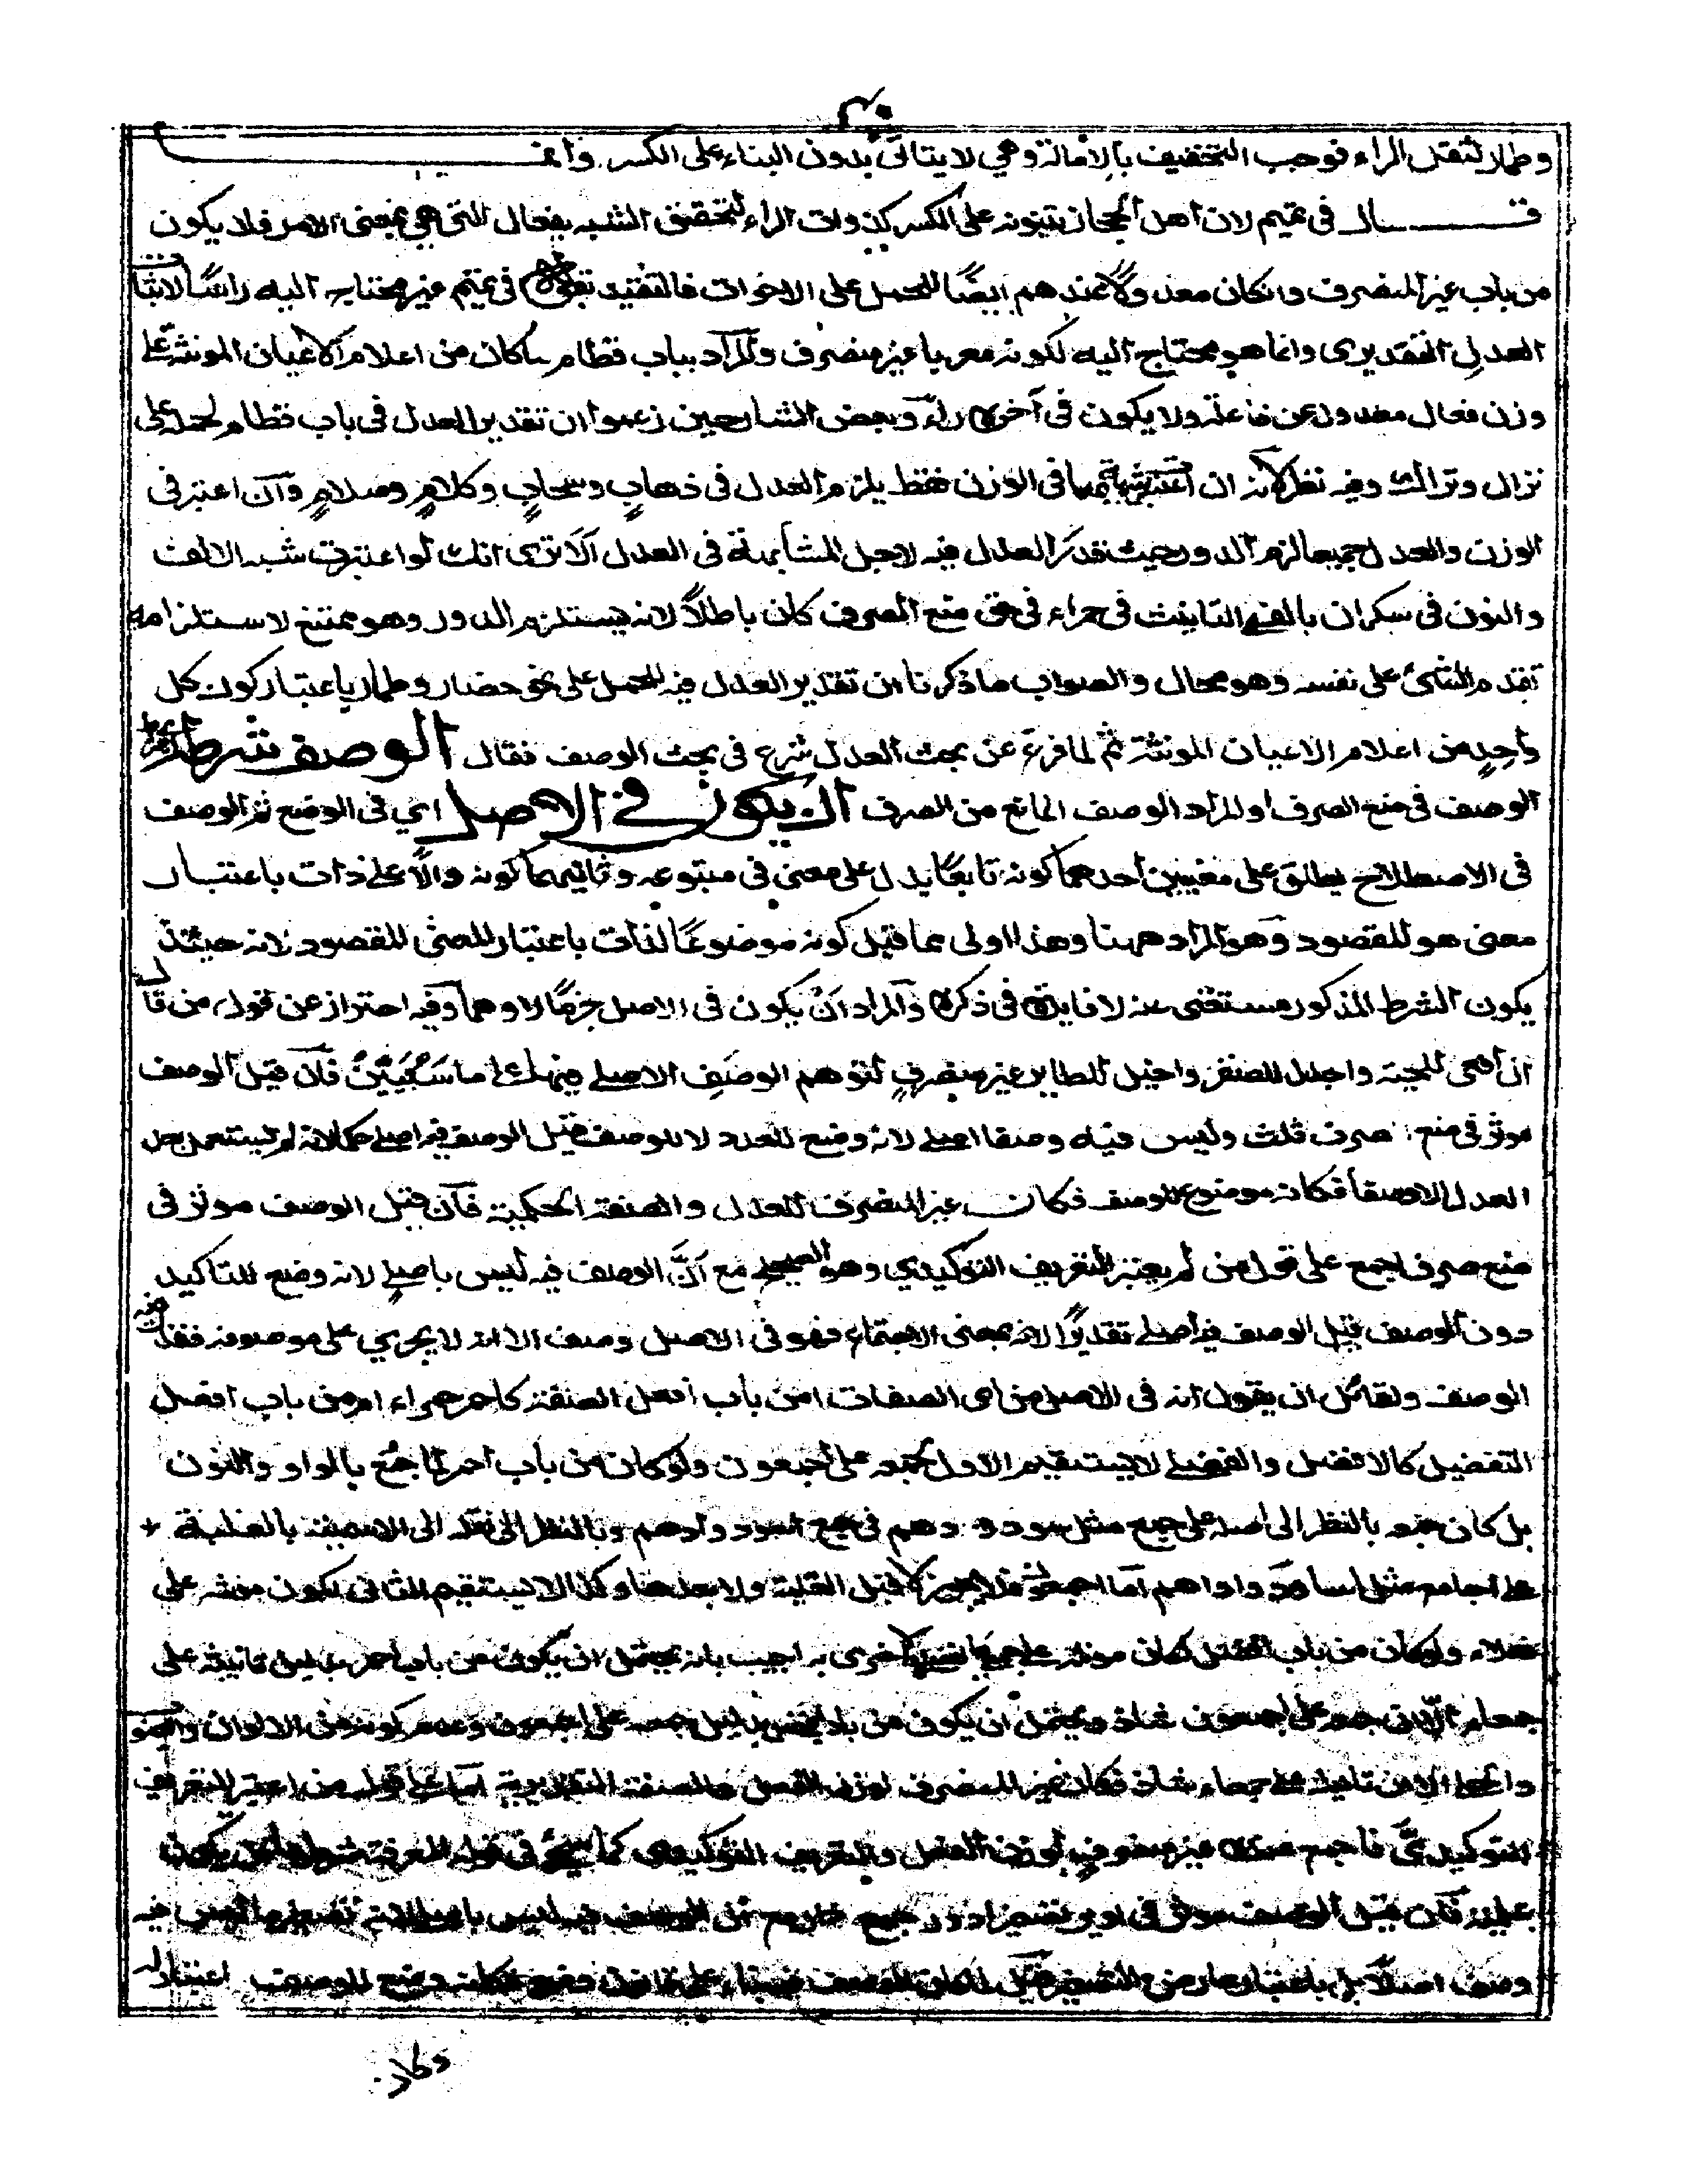 ٣٠
وطمار لثقل الراء فوجب التخفيف بالامالة وهي لا يتاتى بدون البناء على الكسر وانما
قال في تميم لان اهل الحجاز يبنونه على الكسر كذوات الراء لتحقق الشبه بفعال التي هي بمعنى الامر فلا يكون
من باب غير المنصرف وان كان معدولا عندهم ايضًا للحمل على الاخوات فالتقييد بقوله في تميم غير محتاج اليه راسًا لاثبات
العدل التقديرى وانما هو محتاج اليه لكونه معربا غير منصرف والمراد بباب قطام ما كان من اعلام الاعيان المونثة على
وزن فعال معدول عن فاعلة ولا يكون فى آخره راء وبعض الشارحين زعموا ان تقدير العدل فى باب قطام لحمله على
نزال وتراك وفيه نظر لانه ان اعتبر شبهه بهما فى الوزن فقط يلزم العدل فى ذهاب وسحاب وكلام وسلام وان اعتبر فى
الوزن والعدل جميعا لزم الدور حيث قدر العدل فيه لاجل المشابهة فى العدل الا ترى انك لو اعتبرت شبه الالف
والنون فى سكران بالفي التانيث فى حمراء فى حق منع الصرف كان باطلاً لانه يستلزم الدور وهو ممتنع لاستلزامه
تقدم الشئ على نفسه وهو محال والصواب ما ذكرنا من تقدير العدل فيه للحمل على نحو حضار وطمار باعتبار كون كل
واحد من اعلام الاعيان المونثة ثم لما فرغ عن بحث العدل شرع فى بحث الوصف فقال الوصف شرطه
الوصف فى منع الصرف او المراد الوصف المانع من الصرف ان يكون في الاصل اي فى الوضع ثم الوصف
فى الاصطلاح يطلق على معنيين احدهما كونه تابعًا يدل على معنى فى متبوعه وثانيهما كونه دالاً على ذات باعتبار
معنى هو المقصود وهو المراد ههنا وهذا اولى مما قيل كونه موضوعًا لذات باعتبار المعنى المقصود لانه حينئذ
يكون الشرط المذكور مستغنى عنه لا فايدة فى ذكره والمراد ان يكون فى الاصل جزمًا لا وهما وفيه احتراز عن قول من قال
ان افعى للحية واجدل للصقر واخيل للطاير غير منصرف لتوهم الوصف الاصلي فيها على ما سيجيئ فان قيل الوصف
موثر فى منع صرف ثلث وليس فيه وصفا اصلي لانه وضع للعدد لا للوصف قيل الوصف فيه اصلي حكما لانه لم يستعمل بعد
العدل الا وصفا فكانه موضوع للوصف فكان غير المنصرف للعدل والصفة الحكمية فان قيل الوصف موثر فى
منع صرف اجمع على قول من لم يعتبر التعريف التوكيدي وهو الصحيح مع ان الوصف فيه ليس باصلي لانه وضع للتاكيد
دون الوصف قيل الوصف فيه اصلي تقديرًا لانه بمعنى الاجتماع فهو فى الاصل وصف الا انه لا يجري على موصوفه فقد منه
الوصف ولقائل ان يقول انه فى الاصل من اى الصفات امن باب افعل الصفة كاحمر حمراء ام من باب افعل
التفضيل كالافضل والفضلى لا يستقيم الاول لجمعه على اجمعون ولو كان من باب احمر لما جمع بالواو والنون
بل كان جمعه بالنظر الى اصله على جمع مثل سود ودهم فى جمع اسود وادهم وبالنظر الى نقله الى الاسمية بالغلبة
على اجامع مثل اساود واداهم اما اجمعون فلا يجوز لا قبل الغلبة ولا بعدها وكذا لا يستقيم الثانى لكون مونثه على
فعلاء ولو كان من باب افضل لكان مونثه على اجيب بانه يحتمل ان يكون من باب احمر بدليل تانيثه على
جمعاء الا ان جمعه على اجمعون شاذ ويحتمل ان يكون من باب افضل بدليل جمعه على اجمعون وعدم كونه من الالوان والعيوب
الا ان تانيثه على جمعاء شاذ فكان غير المنصرف لوزن الفعل والصفة التقديرية اما على قول من اعتبر التعريف
التوكيدي فاجمع عنده غير منصرف لوزن الفعل والتعريف التوكيدى كما سيجئ فى قوله المعرفة شرطها ان يكون
علمية فان قيل الوصف موثر فى ادير تصغير ادور جمع دار مع ان الوصف فيه ليس باصلي لانه تصغير ما ليس فيه
وصف اصلاً بل باعتبار عارض التصغير قيل اعتبار
وكاد